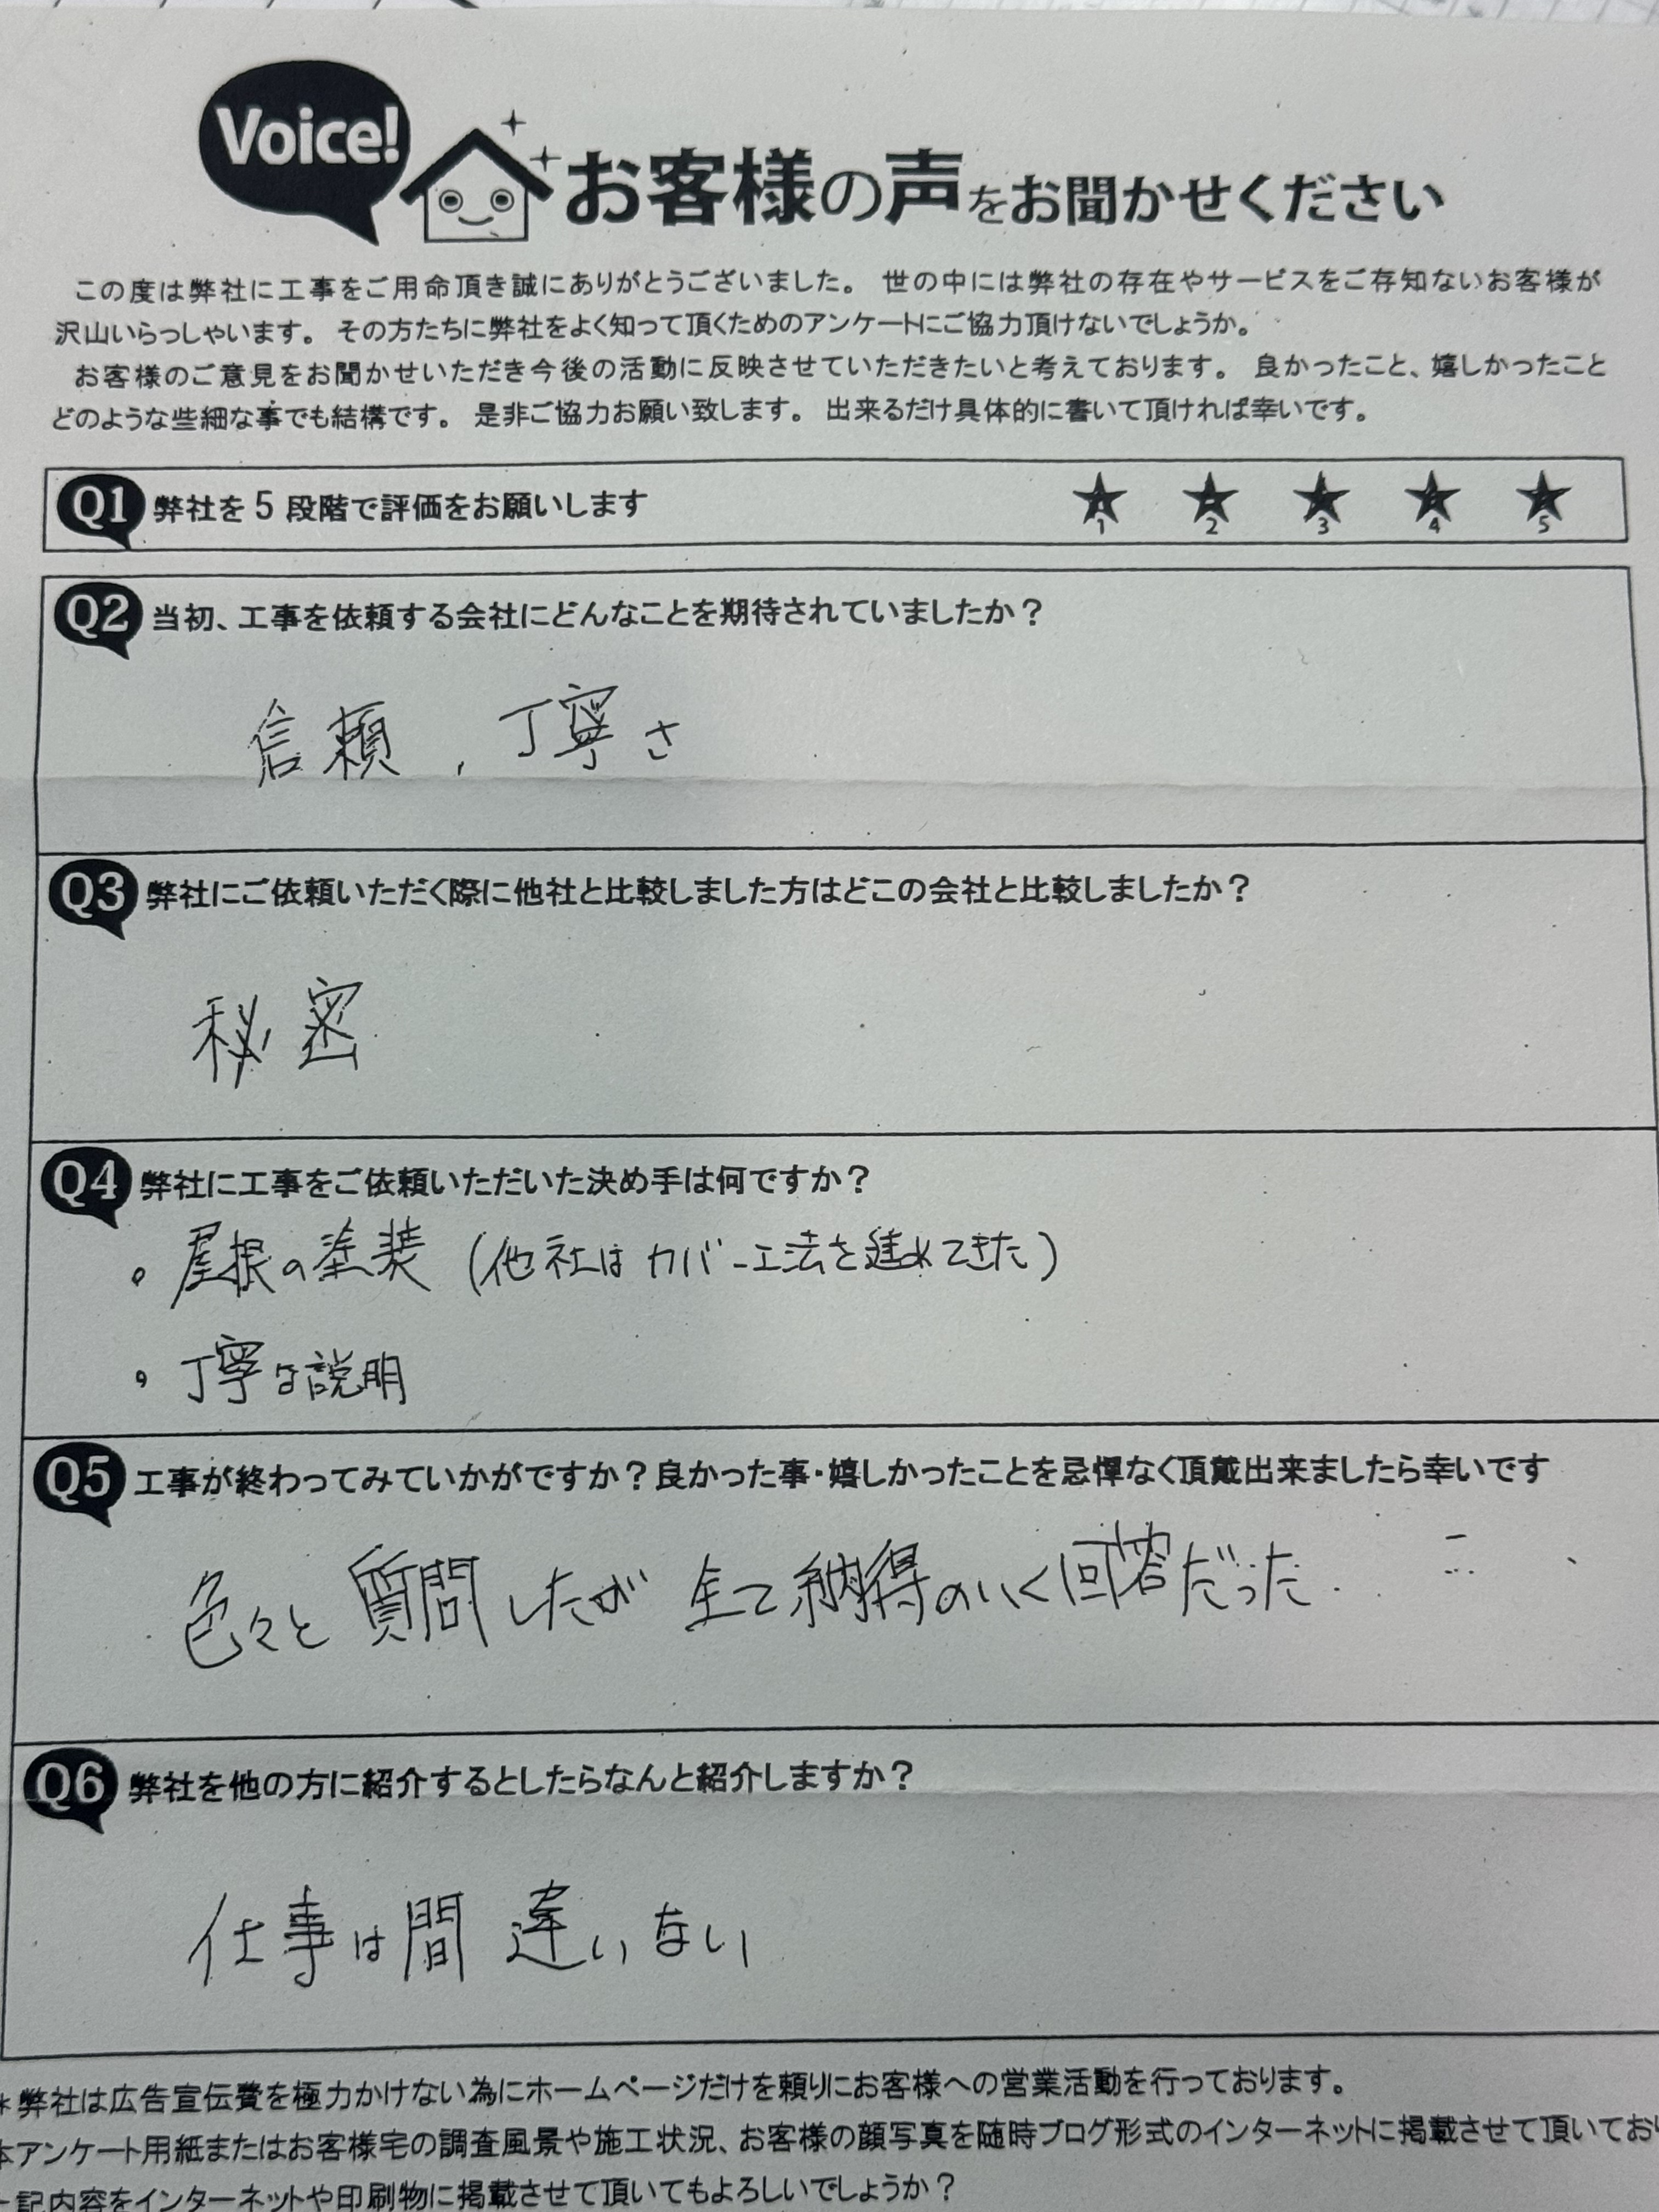 Voice!
お客様の声をお聞かせください
この度は弊社に工事をご用命頂き誠にありがとうございました。 世の中には弊社の存在やサービスをご存知ないお客様が
沢山いらっしゃいます。 その方たちに弊社をよく知って頂くためのアンケートにご協力頂けないでしょうか。
お客様のご意見をお聞かせいただき今後の活動に反映させていただきたいと考えております。 良かったこと、嬉しかったこと
どのような些細な事でも結構です。 是非ご協力お願い致します。 出来るだけ具体的に書いて頂ければ幸いです。
Q1 弊社を5段階で評価をお願いします ★1 ★2 ★3 ★4 ★5
Q2 当初、工事を依頼する会社にどんなことを期待されていましたか?
信頼、丁寧さ
Q3 弊社にご依頼いただく際に他社と比較しました方はどこの会社と比較しましたか?
秘密
Q4 弊社に工事をご依頼いただいた決め手は何ですか?
。屋根の塗装 (他社はカバー工法を進めてきた)
。丁寧な説明
Q5 工事が終わってみていかがですか?良かった事・嬉しかったことを忌憚なく頂戴出来ましたら幸いです
色々と質問したが 全て納得のいく回答だった.
Q6 弊社を他の方に紹介するとしたらなんと紹介しますか?
仕事は間違いない
*弊社は広告宣伝費を極力かけない為にホームページだけを頼りにお客様への営業活動を行っております。
本アンケート用紙またはお客様宅の調査風景や施工状況、お客様の顔写真を随時ブログ形式のインターネットに掲載させて頂いてお
記内容をインターネットや印刷物に掲載させて頂いてもよろしいでしょうか?